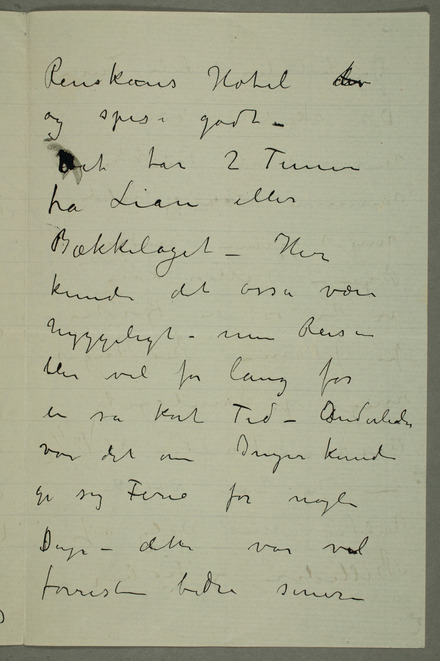 Hotel
og spise godt –
Det tar 2 Timer
fra Lian eller
Bækkelaget – Her
kunde det ossa være
hyggeligt – men Reisen
blir vel for lang for
en sa kort Tid – Anderledes
var det om kunde
gi sig Ferie for nogle
Dage – dette var vel
forresten bedre senere